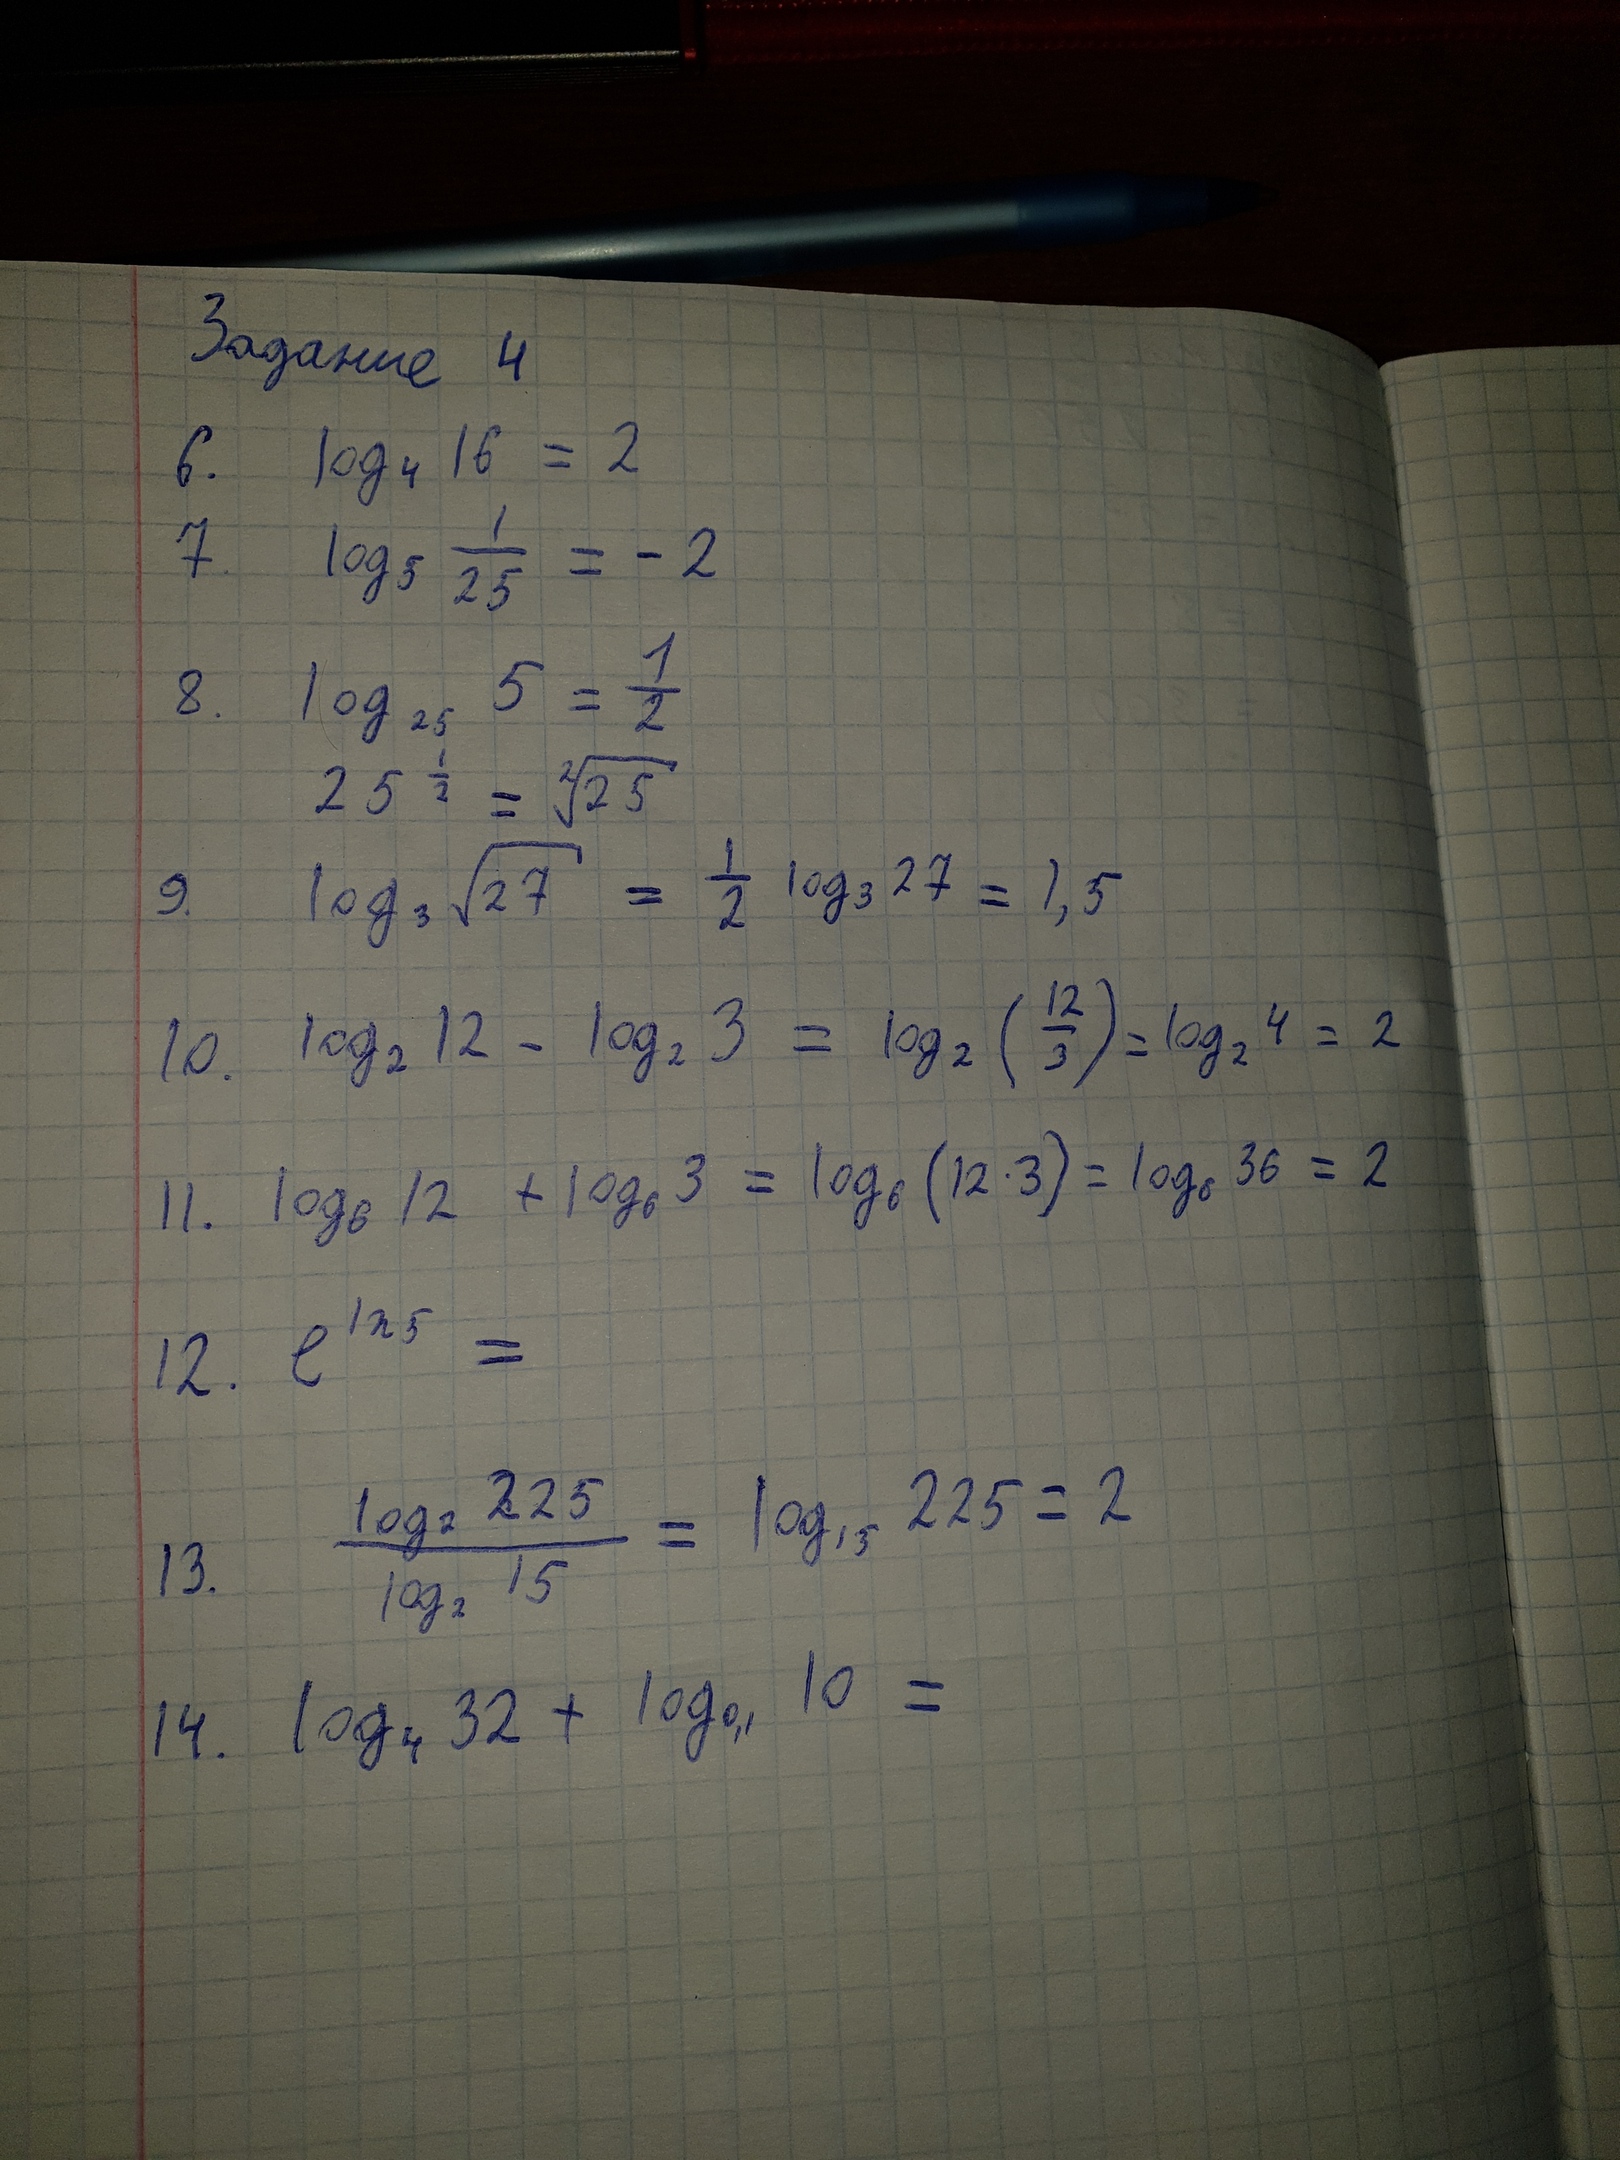 Задание 4
6. log₄ 16 = 2
7. log₅ 1/25 = - 2
8. log₂₅ 5 = 1/2
25^(1/2) = ²√25
9. log₃ √27 = 1/2 log₃ 27 = 1,5
10. log₂ 12 - log₂ 3 = log₂ (12/3) = log₂ 4 = 2
11. log₆ 12 + log₆ 3 = log₆ (12·3) = log₆ 36 = 2
12. e^(ln 5) =
13. log₂ 225 / log₂ 15 = log₁₅ 225 = 2
14. log₄ 32 + log₀,₁ 10 =